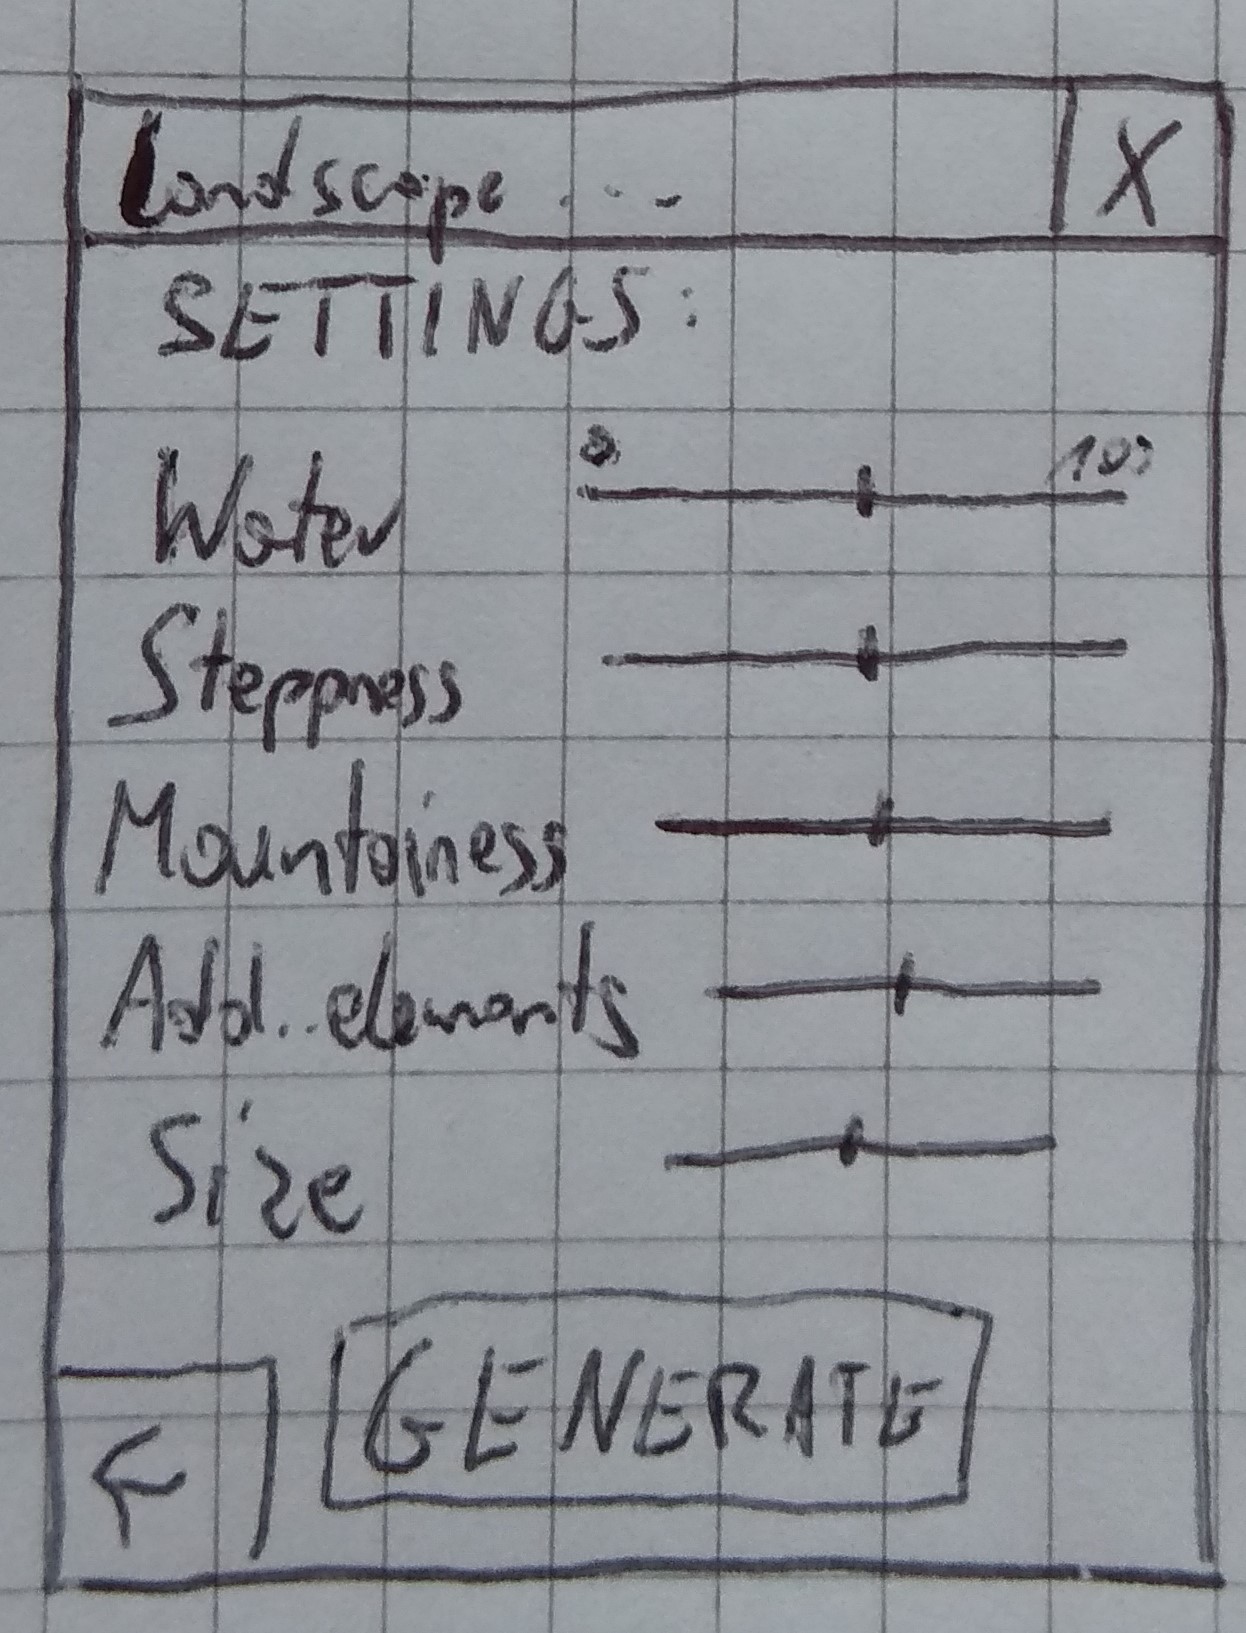 Landscape ...
X
SETTINGS:
0 100
Water
Steppness
Mountainess
Add.. elements
Size
GENERATE
←